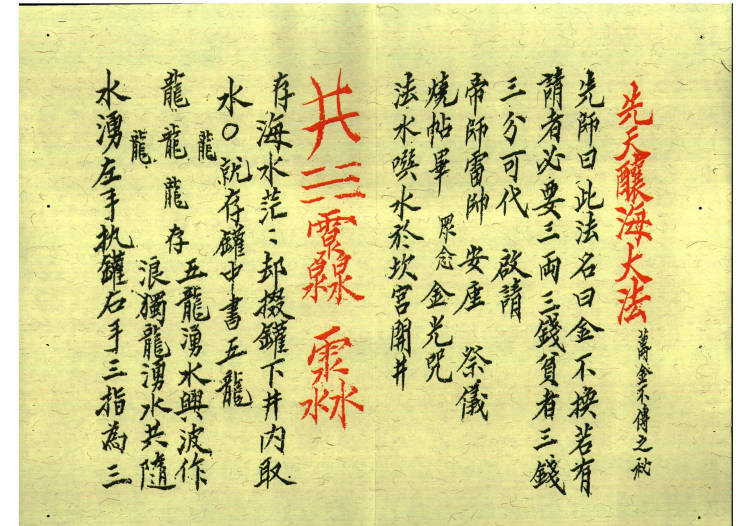 先天釀海大法 萬金不傳之秘
先師曰此法名曰金不換若有
請者必要三兩三錢貧者三錢
三分可代 啟請
帝師雷帥 安座 祭儀
燒帖畢 眾念 金光咒
法水噀水於坎宮開井
存海水茫〻却掇罐下井内取
水〇就存罐中書五龍
龍
龍龍龍存
龍
五龍湧水興波作
浪獨龍湧水共隨
水湧左手执罐右手三指為三